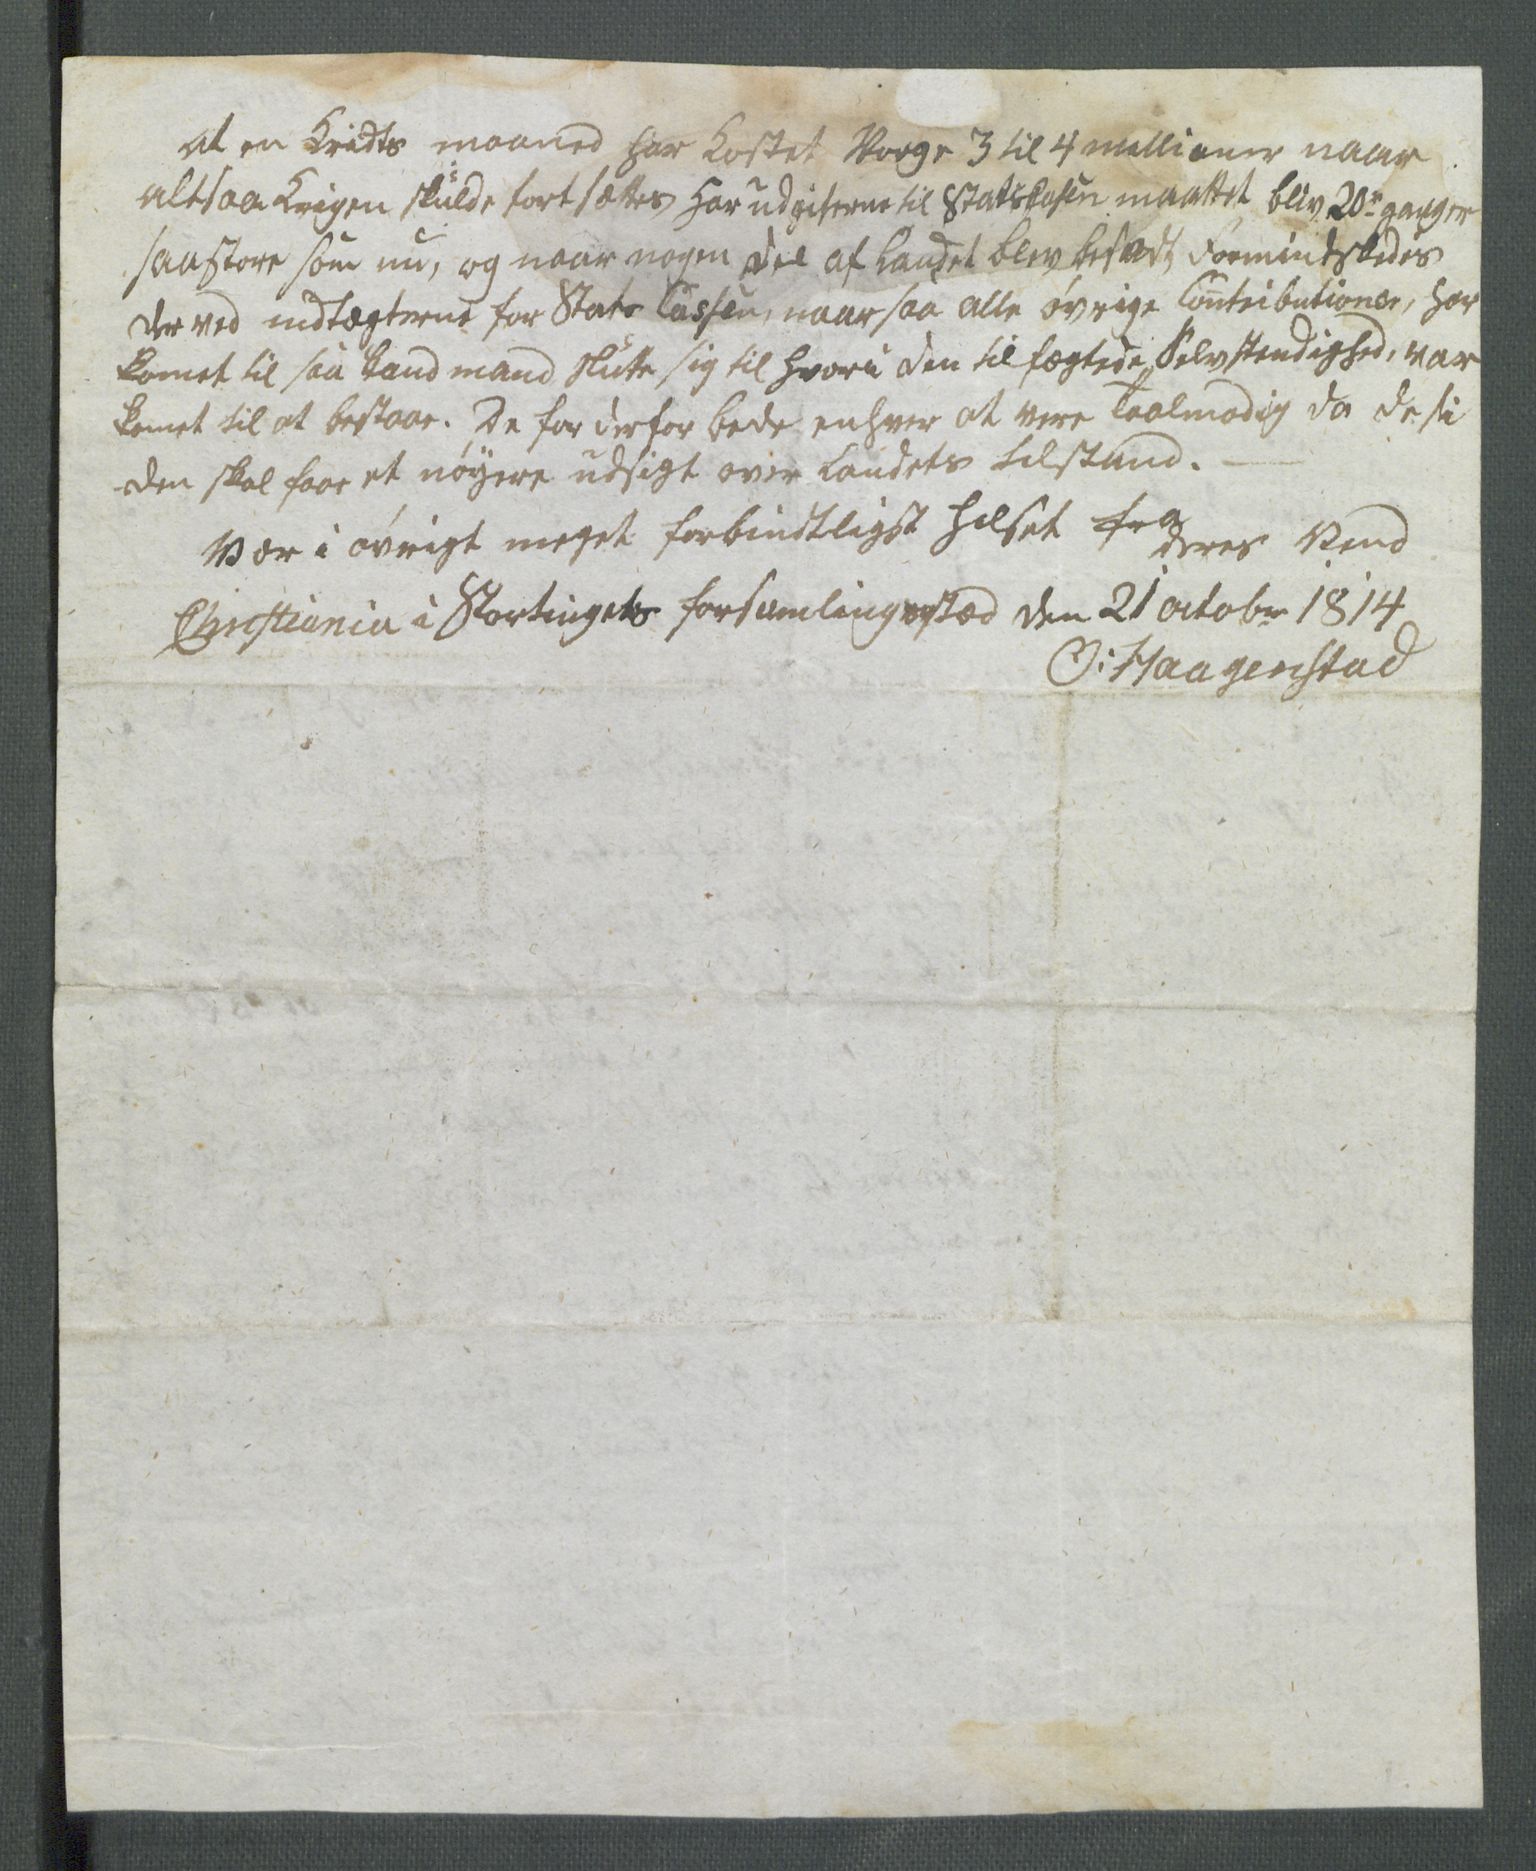 at en Kridts maaned har Kostet Norge 3 til 4 mellioner naar
altsaa Krigen skulde fortsættes har udgifterne til Statskasen maattet bliv 20r ganger
saa store som nu, og naar nogen Del af Landet blev besadt formindskedes
der ved indtægterne for Stats Cassen, naar saa alle øvrige Contributioner, har
komet til saa kand mand slutte sig til hvori den til fægtede Selvstendighed, var
komet til at bestaae. De for derfor bede enhver at vere Taalmodig da de si
den skal faae et nøyere udsigt over Landets tilstand.
Vær i øvrigt meget forbindtligst hilset fra
deres Vend
Christiania i Stortingets forsamlingsstæd den 21 octobr 1814
O: Haagenstad